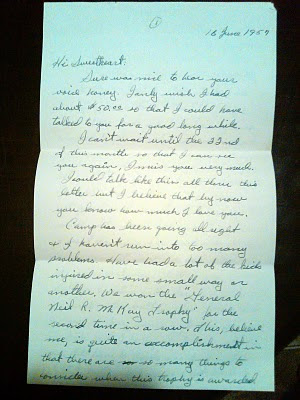 ①
16 June 1959
Hi Sweetheart:
Sure was nice to hear your
voice honey. I only wish I had
about $50.00 so that I could have
talked to you for a good long while.
I can't wait until the 22nd
of this month so that I can see
you again. I miss you very much.
I could talk like this all thru this
letter but I believe that by now
you know how much I love you.
Camp has been going all right
& I haven't run into too many
problems. Have had a lot of the kids
injured in some small way or
another. We won the "General
Neil R. McKay Trophy" for the
second time in a row. This, believe
me, is quite an accomplishment in
that there are so many things to
consider when this trophy is awarded